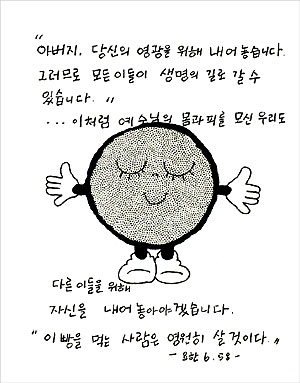 "아버지, 당신의 영광을 위해 내어 놓습니다.
그러므로 모든이들이 생명의 길로 갈 수
있습니다. "
... 이처럼 예수님의 몸과 피를 모신 우리도
다른 이들을 위해
자신을 내어 놓아야겠습니다.
"이 빵을 먹는 사람은 영원히 살 것이다."
- 요한 6. 58 -